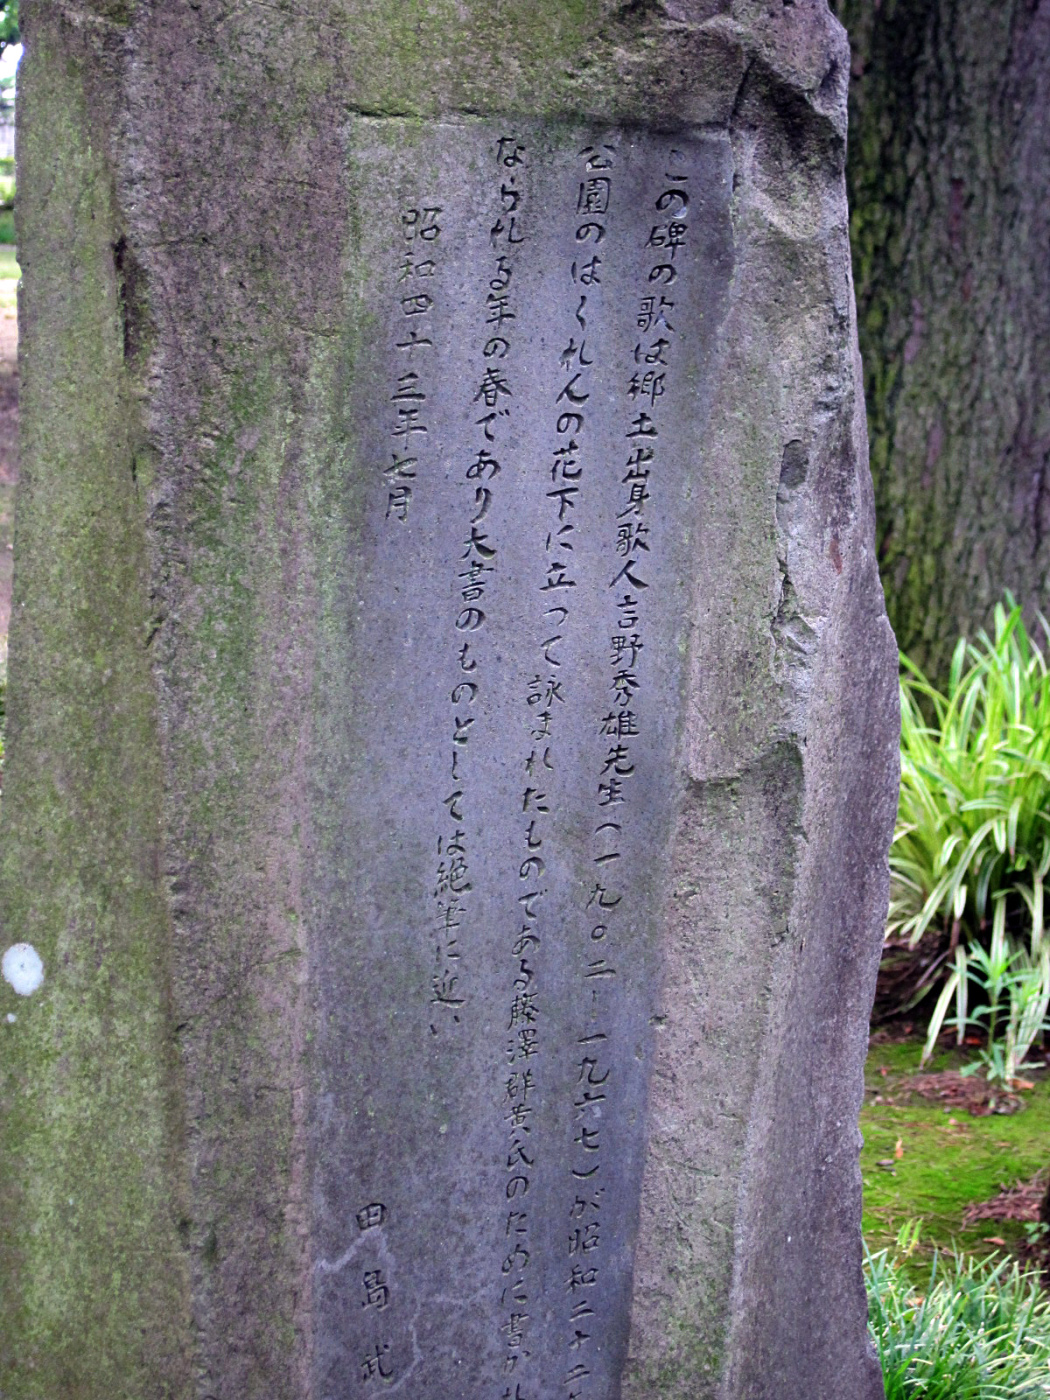 この碑の歌は郷土出身歌人吉野秀雄先生(一九〇二-一九六七)が昭和二十二年
公園のはくれんの花下に立つて詠まれたものである藤澤群黄氏のために書かれ
なられる年の春であり大書のものとしては絶筆に近い
昭和四十三年七月
田島武